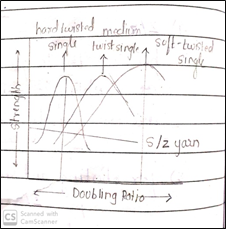 hard twisted
single
medium
twist single
soft-twisted
single
strength
S/Z yarn
Doubling Ratio
CS Scanned with
CamScanner